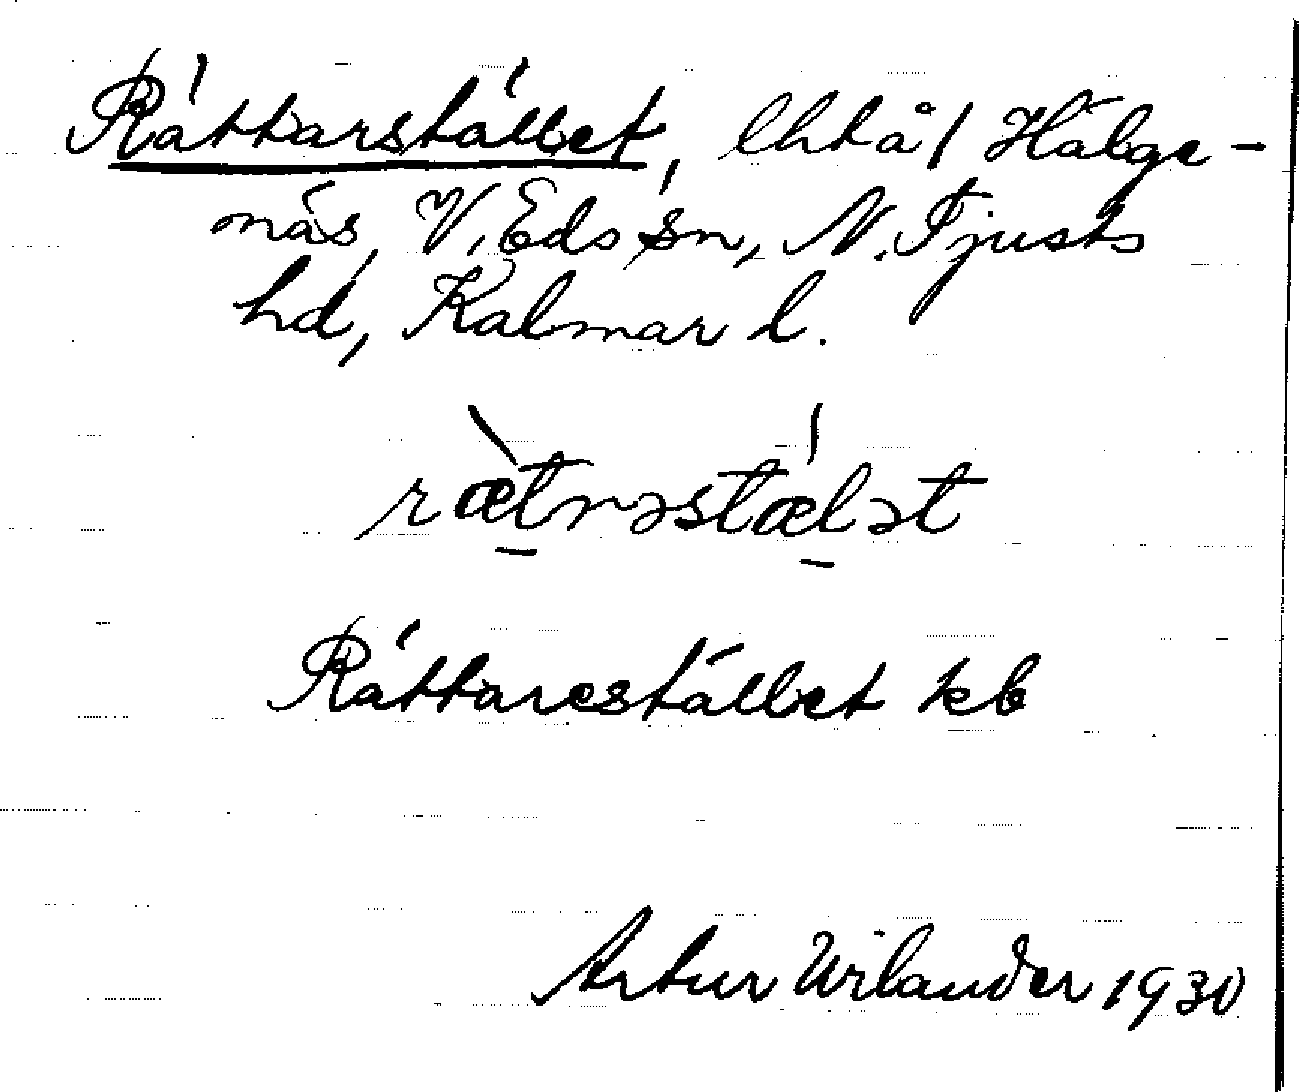 Rättarstället, lht å / Hälge-
näs, V. Eds sn, N. Tjusts
hd, Kalmar l.
ræ̀trəstǽlət
Rättarestället kb
Artur Wilander 1930